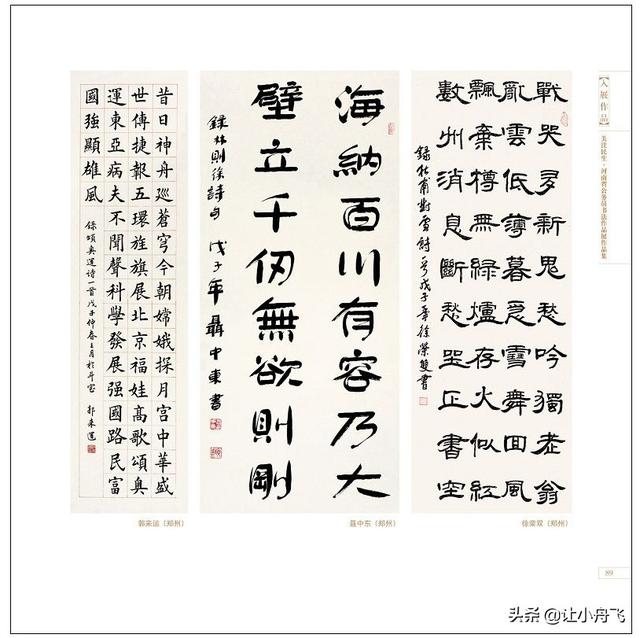 【入展作品】
关注民生·河南省公务员书法作品展作品集
戰哭多新鬼愁吟獨老翁
亂雲低薄暮急雪舞回風
飄棄樽無綠爐存火似紅
數州消息斷愁坐正書空
錄杜甫對雪詩一首戊子年徐榮雙書
海納百川有容乃大
壁立千仞無欲則剛
錄林則徐詩句 戊子年聶中東書
昔日神舟巡蒼穹今朝嫦娥探月宮中華盛
世傳捷報五環旌旗展北京福娃高歌頌奧
運東亞病夫不聞聲科學發展强國路民富
國強顯雄風
錄頌奥運诗一首戊子仲春之月於斗室 郭来運
郭来运（郑州）
聂中东（郑州）
徐荣双（郑州）
89
头条 @让小舟飞